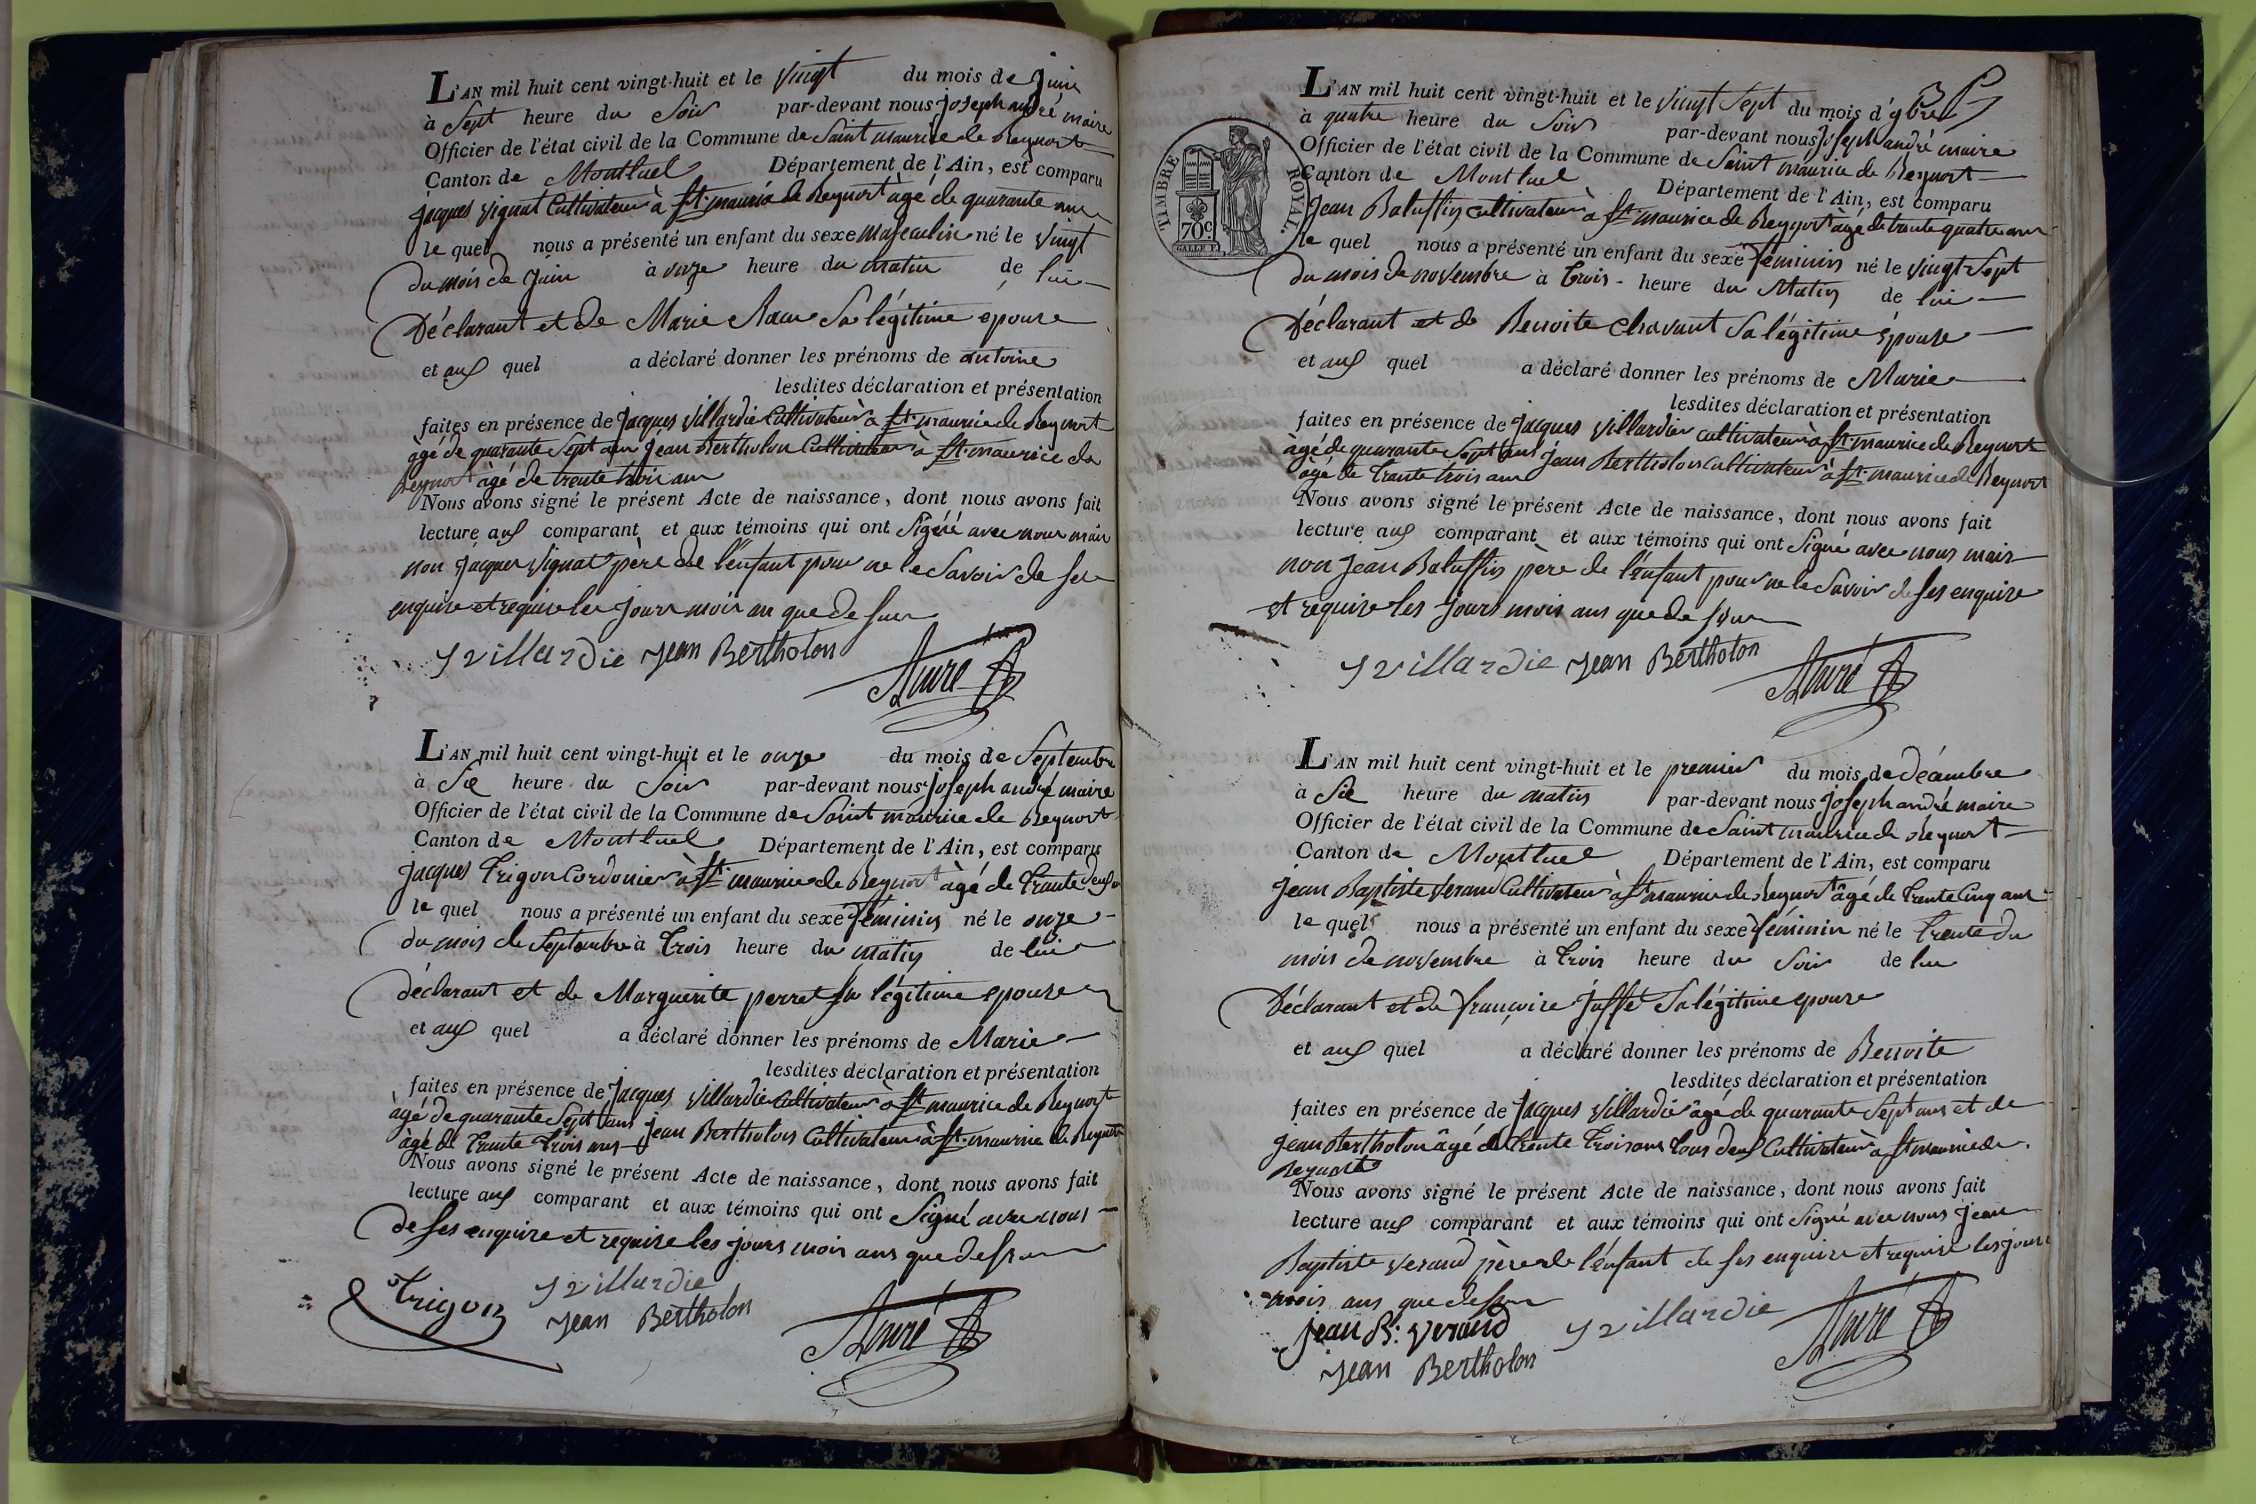 L'AN mil huit cent vingt-huit et le vingt du mois de juin
à Sept heure du Soir par-devant nous joseph andré maire
Officier de l'état civil de la Commune de Saint maurice de Beynost
Canton de Montluel Département de l'Ain, est comparu
jacques vignat Cultivateur à St maurice de Beynost âgé de quarante ans
le quel nous a présenté un enfant du sexe masculin né le vingt
du mois de juin à onze heure du matin de lui
Déclarant et de Marie Sa légitime épouse
et auq quel a déclaré donner les prénoms de antoine
lesdites déclaration et présentation
faites en présence de jacques villardie Cultivateur à St maurice de Beynost
âgé de quarante Sept ans jean Bertholon Cultivateur à St maurice de
Beynost âgé de trente trois ans
Nous avons signé le présent Acte de naissance, dont nous avons fait
lecture auq comparant et aux témoins qui ont Signé avec nous mais
non jacques vignat père de l'enfant pour ne le Savoir de ses
enquise et requise les jours mois an que dessus
J villardie jean Bertholon
André
L'AN mil huit cent vingt-huit et le onze du mois de Septembre
à Sie heure du Soir par-devant nous joseph andré maire
Officier de l'état civil de la Commune de Saint maurice de Beynost
Canton de Montluel Département de l'Ain, est comparu
jacques Trigon Cordonier à St maurice de Beynost âgé de trente deux
le quel nous a présenté un enfant du sexe féminin né le onze
du mois de Septembre à trois heure du matin de lui
déclarant et de Marguerite perret Sa légitime épouse
et auq quel a déclaré donner les prénoms de Marie
lesdites déclaration et présentation
faites en présence de jacques villardie Cultivateur à St maurice de Beynost
âgé de quarante Sept ans jean Bertholon Cultivateur à St maurice de Beynost
âgé de trente trois ans
Nous avons signé le présent Acte de naissance, dont nous avons fait
lecture auq comparant et aux témoins qui ont Signé avec nous
de ses enquise et requise les jours mois ans que dessus
Trigon J villardie
jean Bertholon
André
L'AN mil huit cent vingt-huit et le vingt Sept du mois d' 9bre
à quatre heure du Soir par-devant nous joseph andré maire
Officier de l'état civil de la Commune de Saint maurice de Beynost
Canton de Montluel Département de l'Ain, est comparu
TIMBRE ROYAL.
70 c.
jean Baluffin cultivateur à St maurice de Beynost âgé de trente quatre ans
le quel nous a présenté un enfant du sexe féminin né le vingt Sept
du mois de novembre à trois heure du Matin de lui
Déclarant et de Benoite Chavant Sa légitime épouse
et auq quel a déclaré donner les prénoms de Marie
lesdites déclaration et présentation
faites en présence de jacques villardie cultivateur à St maurice de Beynost
âgé de quarante Sept ans jean Bertholon cultivateur à St maurice de Beynost
âgé de trente trois ans
Nous avons signé le présent Acte de naissance, dont nous avons fait
lecture auq comparant et aux témoins qui ont Signé avec nous mais
non jean Baluffin père de l'enfant pour ne le Savoir de ses enquise
et requise les jours mois ans que dessus
J villardie jean Bertholon
André
L'AN mil huit cent vingt-huit et le premier du mois de décembre
à Sie heure du matin par-devant nous joseph andré maire
Officier de l'état civil de la Commune de Saint maurice de Beynost
Canton de Montluel Département de l'Ain, est comparu
jean Baptiste verand Cultivateur à St maurice de Beynost âgé de trente cinq ans
le quel nous a présenté un enfant du sexe féminin né le trente du
mois de novembre à trois heure du Soir de lui
Déclarant et de françoise Juffé Sa légitime épouse
et auq quel a déclaré donner les prénoms de Benoite
lesdites déclaration et présentation
faites en présence de jacques villardie âgé de quarante Sept ans et de
jean Bertholon âgé de trente trois ans tous deux Cultivateur à St maurice de
Beynost
Nous avons signé le présent Acte de naissance, dont nous avons fait
lecture auq comparant et aux témoins qui ont Signé avec nous jean
Baptiste verand père de l'enfant de ses enquise et requise les jours
mois ans que dessus
jean B: verand J villardie
jean Bertholon
André